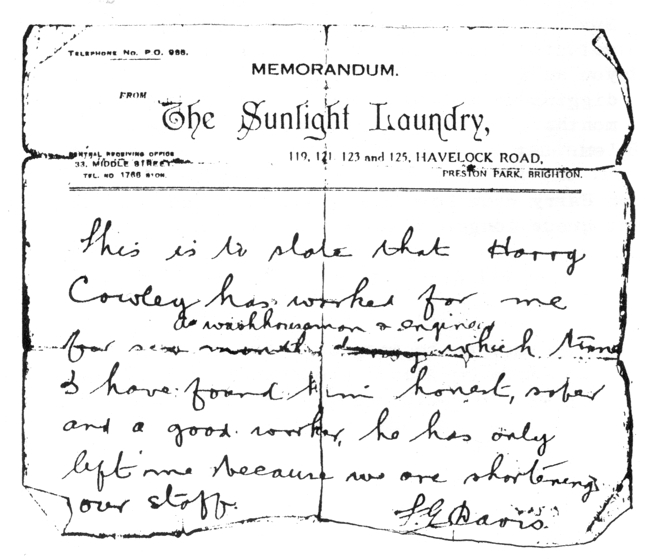 TELEPHONE NO. P.O. 986.
MEMORANDUM.
FROM
The Sunlight Laundry,
CENTRAL RECEIVING OFFICE
33, MIDDLE STREET
TEL. NO 1766 B'TON.
119, 121 123 and 125, HAVELOCK ROAD,
PRESTON PARK, BRIGHTON.
This is to state that Harry
Cowley has worked for me
as washhouseman & engineer
for six months during which time
I have found him honest, sober
and a good worker, he has only
left me because we are shortening
our staff.
F. G. Davis.